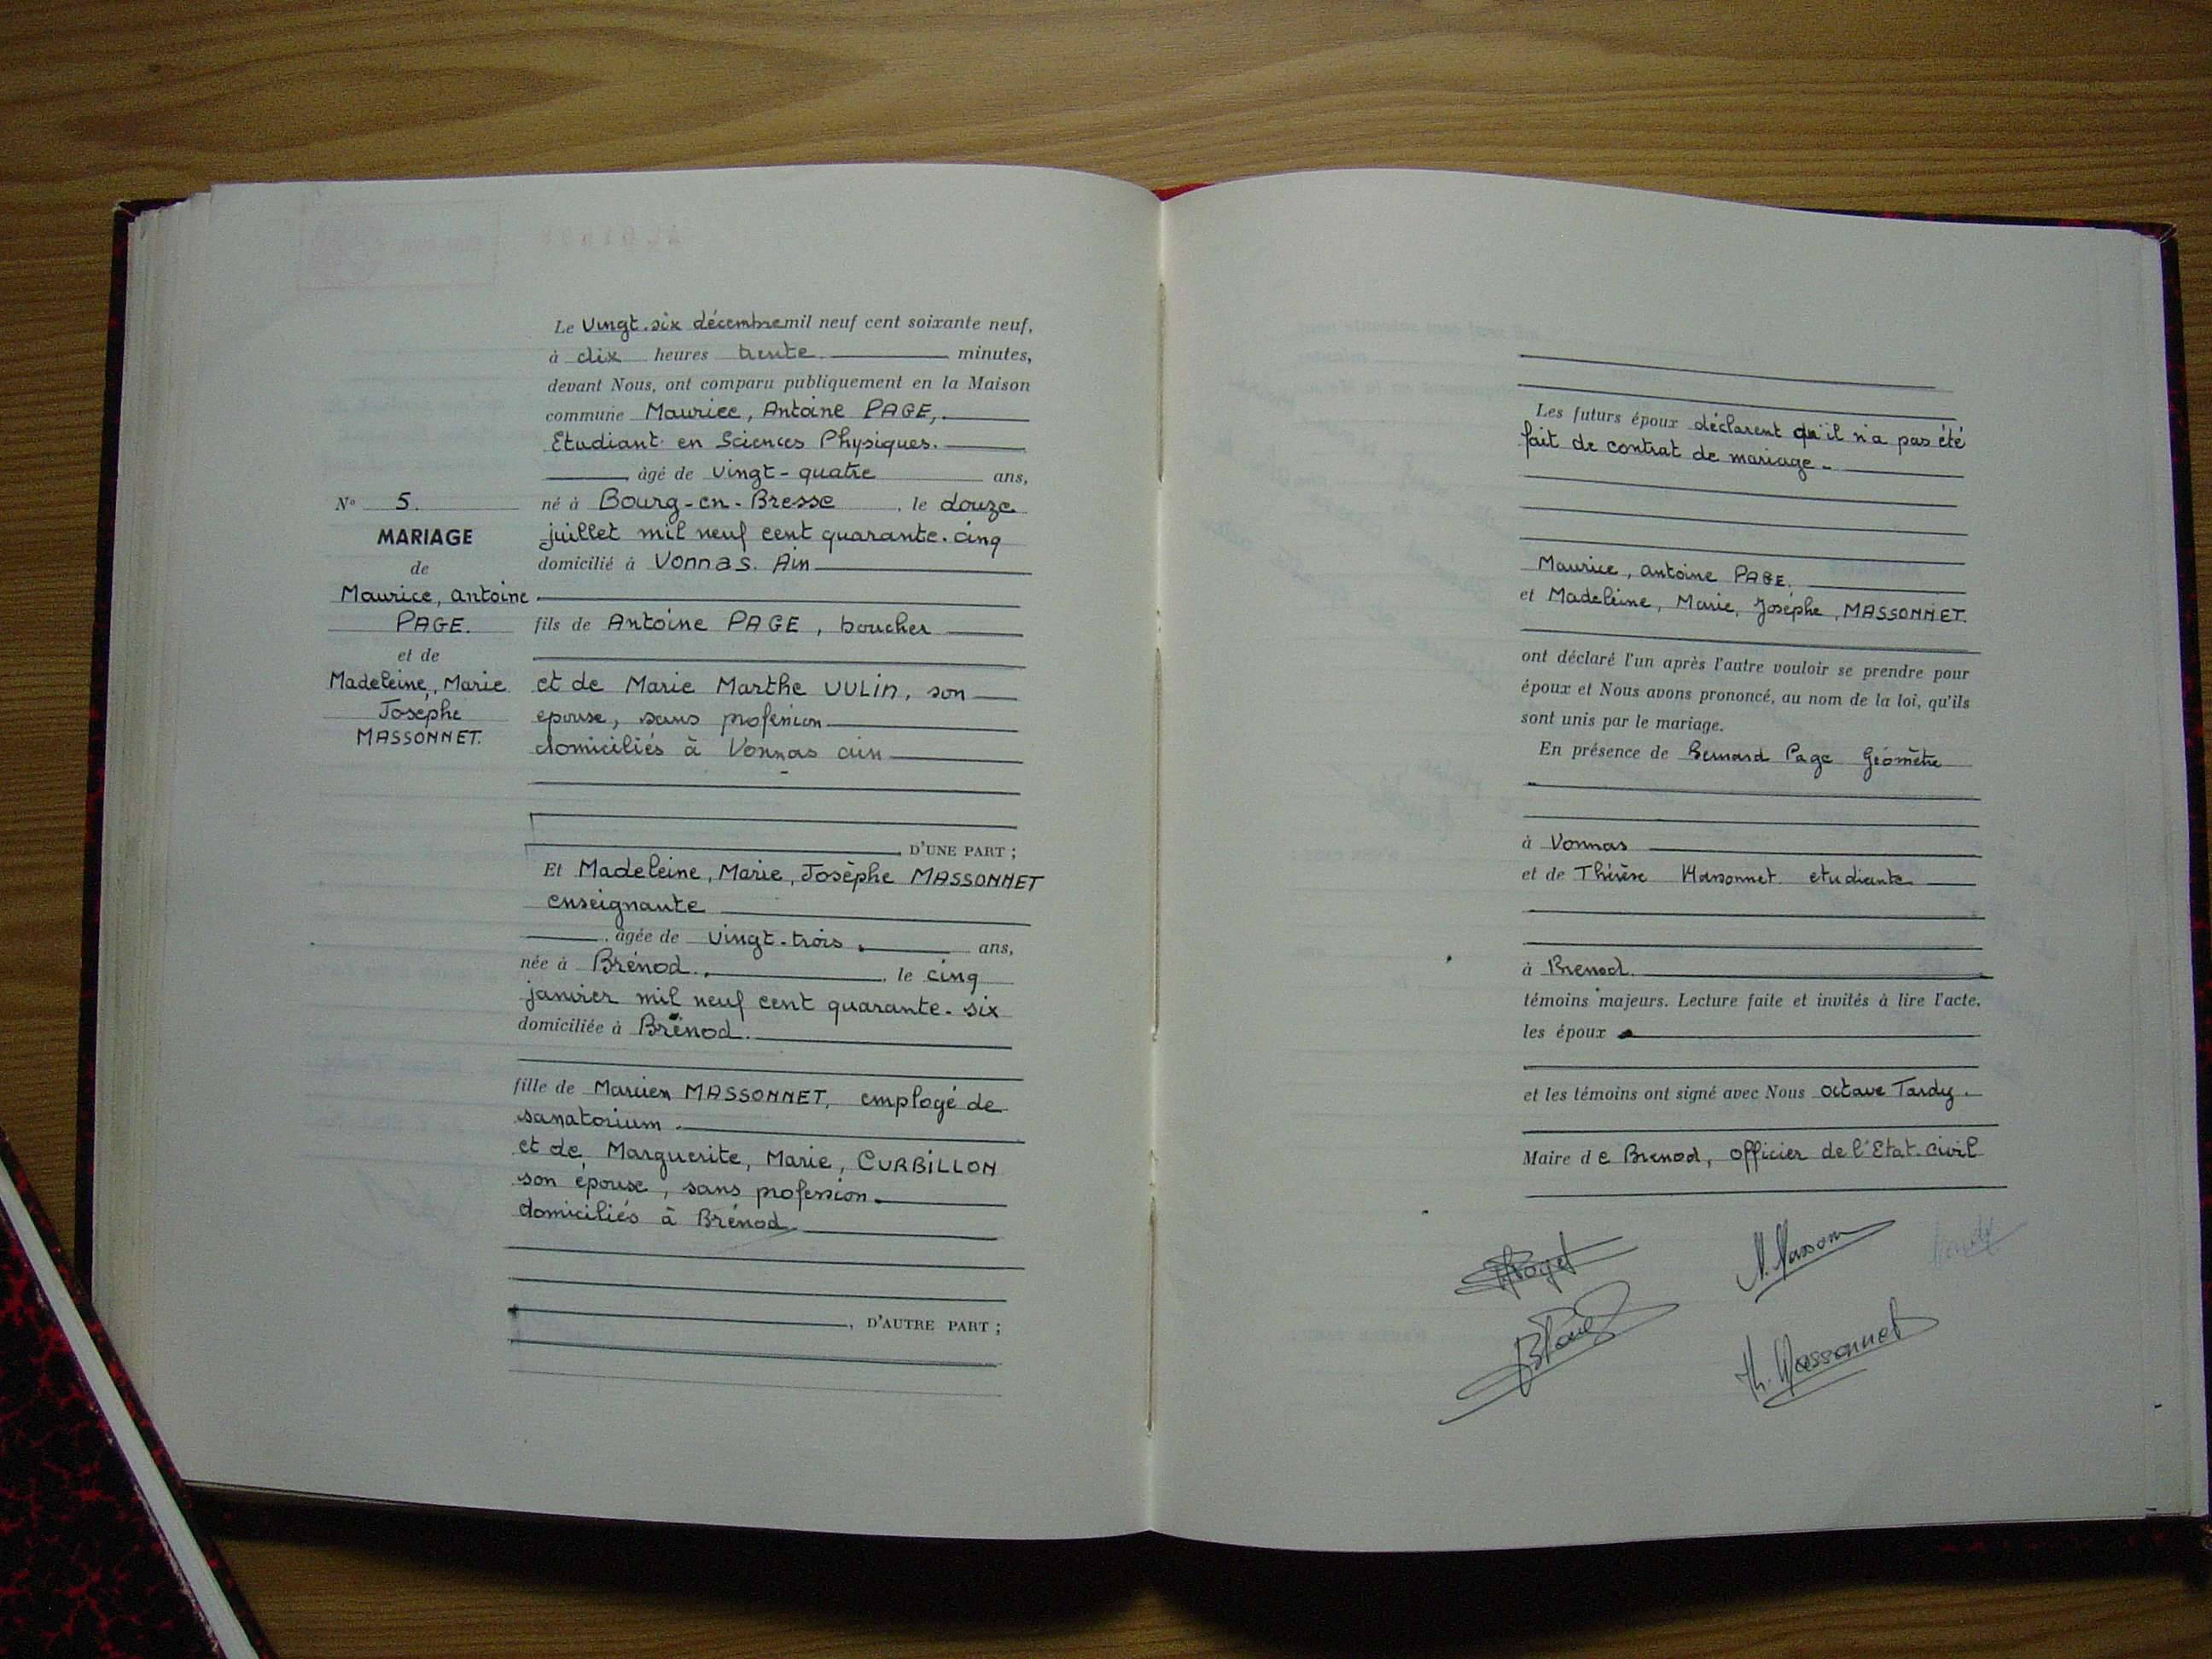 Le Vingt-six décembre mil neuf cent soixante neuf,
à dix heures trente minutes,
devant Nous, ont comparu publiquement en la Maison
commune Maurice, Antoine PAGE,
Etudiant en Sciences Physiques.
âgé de vingt-quatre ans,
né à Bourg-en-Bresse, le douze
juillet mil neuf cent quarante-cinq
domicilié à Vonnas. Ain
fils de Antoine PAGE, boucher
et de Marie Marthe VULIN, son
epouse, sans profession
domiciliés à Vonnas ain
D'UNE PART ;
Et Madeleine, Marie, Josèphe MASSONNET
enseignante
, âgée de vingt-trois ans,
née à Brénod, le cinq
janvier mil neuf cent quarante-six
domiciliée à Brénod.
fille de Marius MASSONNET, employé de
sanatorium
et de Marguerite, Marie, CURBILLON
son épouse, sans profession
domiciliés à Brénod
, D'AUTRE PART ;
N° 5.
MARIAGE
de
Maurice, Antoine
PAGE.
et de
Madeleine, Marie
Josèphe
MASSONNET.
Les futurs époux déclarent qu'il n'a pas été
fait de contrat de mariage
Maurice, Antoine PAGE.
et Madeleine, Marie, Josèphe, MASSONNET.
ont déclaré l'un après l'autre vouloir se prendre pour
époux et Nous avons prononcé, au nom de la loi, qu'ils
sont unis par le mariage.
En présence de Bernard Page Géomètre
à Vonnas
et de Thérèse Massonnet etudiante
à Brenod.
témoins majeurs. Lecture faite et invités à lire l'acte,
les époux
et les témoins ont signé avec Nous Octave Tardy.
Maire de Brenod, officier de l'Etat-Civil
Th. Massonnet